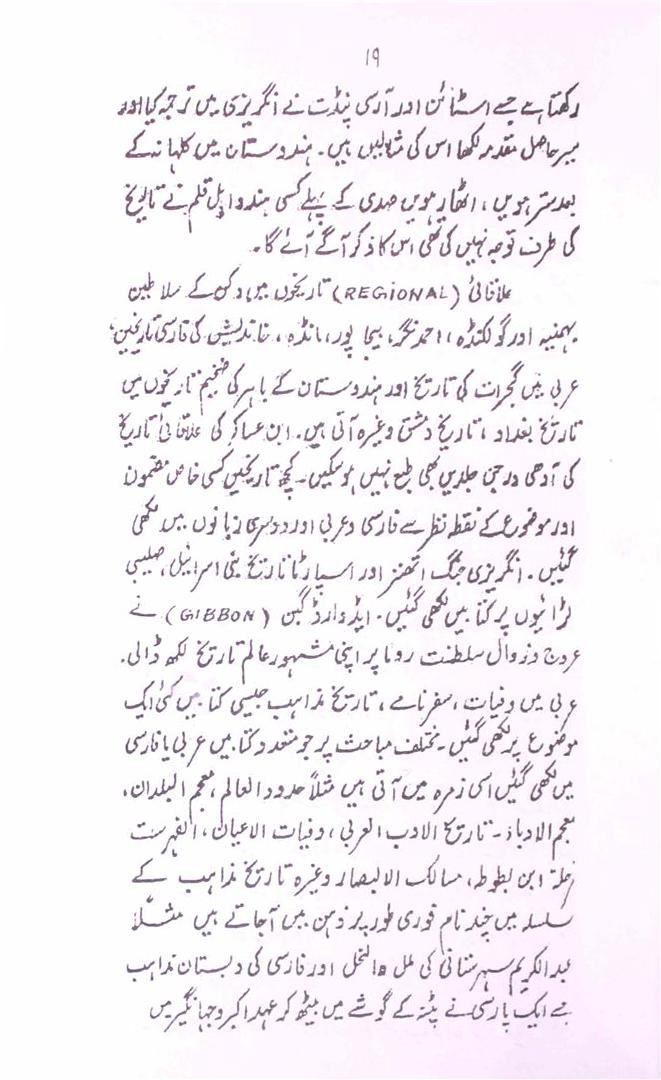 ۱۹
رکھتا ہے جسے اسٹائن اور آرسی پنڈت نے انگریزی میں ترجمہ کیا اور
سیر حاصل مقدمہ لکھا اس کی مثالیں ہیں۔ ہندوستان میں کلہانہ کے
بعد سترہویں، اٹھارہویں صدی کے پہلے کسی ہندو اہل قلم نے تاریخ
کی طرف توجہ نہیں کی تھی اس کا ذکر آگے آئے گا۔
علاقائی (REGIONAL) تاریخوں میں دکن کے سلاطین
بہمنیہ اور گولکنڈہ، احمد نگر، بیجا پور، مانڈہ، خاندیش کی فارسی تاریخیں،
عربی میں گجرات کی تاریخ اور ہندوستان کے باہر کی ضخیم تاریخوں میں
تاریخ بغداد، تاریخ دمشق وغیرہ آتی ہیں۔ ابن عساکر کی علاقائی تاریخ
کی آدھی درجن جلدیں بھی طبع نہیں ہو سکیں۔ کچھ تاریخیں کسی خاص مضمون
اور موضوع کے نقطہ نظر سے فارسی و عربی اور دوسری زبانوں میں لکھی
گئیں۔ انگریزی جنگ اتھنز اور اسپارٹا تاریخ بنی اسرائیل، صلیبی
لڑائیوں پر کتابیں لکھی گئیں۔ ایڈوارڈ گبن (GIBBON) نے
عروج و زوال سلطنت روما پر اپنی مشہور عالم تاریخ لکھ ڈالی۔
عربی میں وفیات، سفرنامے، تاریخ مذاہب جیسی کتابیں کئی ایک
موضوع پر لکھی گئیں۔ مختلف مباحث پر جو متعدد کتابیں عربی یا فارسی
میں لکھی گئیں اسی زمرہ میں آتی ہیں مثلاً حدود العالم، معجم البلدان،
معجم الادباء۔ تاریخ الادب العربی، وفیات الاعیان، الفہرست
رحلۃ ابن بطوطہ، مسالک الابصار وغیرہ تاریخ مذاہب کے
سلسلہ میں چند نام فوری طور پر ذہن میں آجاتے ہیں مثلاً
عبدالکریم شہرستانی کی ملل والنحل اور فارسی کی دبستان مذاہب
جسے ایک پارسی نے پٹنہ کے گوشے میں بیٹھ کر عہد اکبر و جہانگیر میں